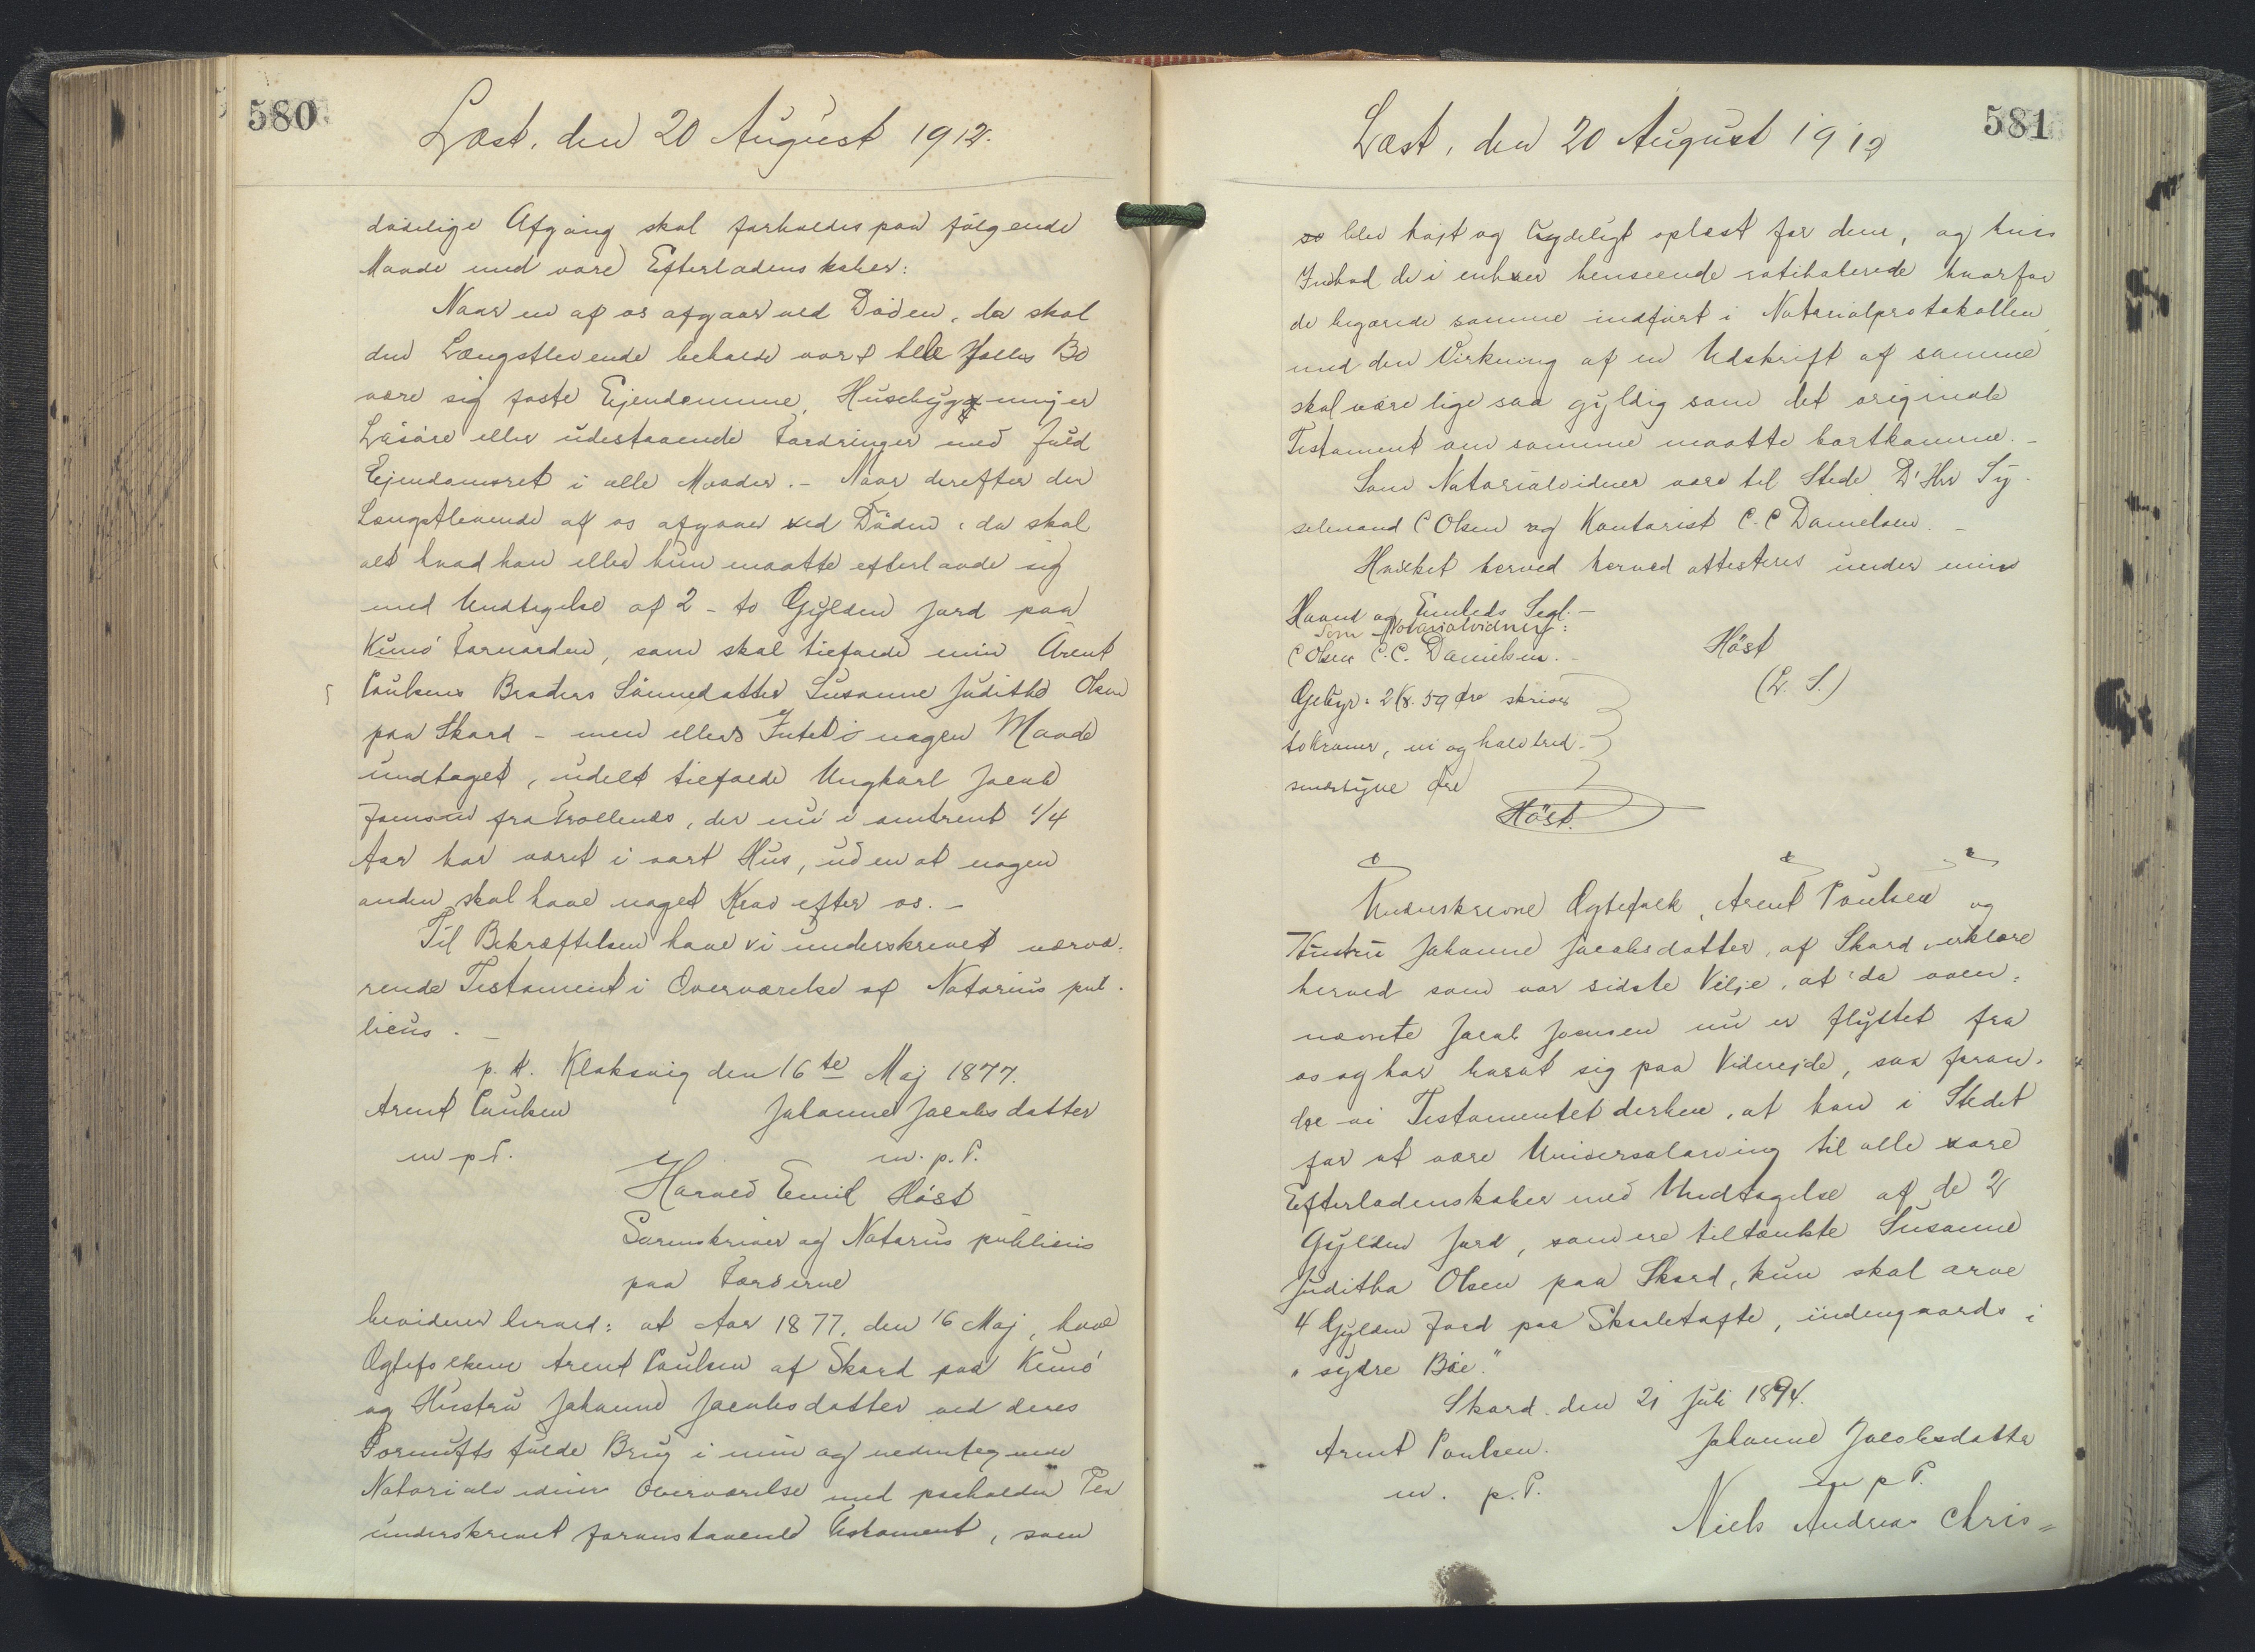 580
Læst, den 20 August 1912.
dödelige Afgang skal forholdes paa fölgende
Maade med vore Efterladenskaber:
Naar en af os afgaar ved Döden, da skal
den Længstlevende beholde vort hele Fælles Bo
være sig faste Ejendomme, Husebygninger
Lösöre eller udestaaende Fordringer med fuld
Ejendomsret i alle Maader. - Naar derefter den
Længstlevende af os afgaar ved Döden, da skal
alt hvad han eller hun maatte efterlade sig
med Undtagelse af 2 - to Gylden Jord paa
Kunö Færøerne, som skal tilfalde min Arent
Poulsens Broders Sönnedatter Susanne Juditha Olsen
paa Skard - men ellers Intet i nogen Maade
undtaget, udelt tilfalde Ungkarl Jacob
Joensen fra Trollenes, der nu i omtrent 1/4
Aar har været i vort Hus, uden at nogen
anden skal have noget Krav efter os. -
Til Bekræftelsen have vi underskrevet nærvæ-
rende Testament i Overværelse af Notarius pub-
licus. -
p. t. Klaksvig den 16te Maj 1877.
Arent Poulsen Johanne Jacobsdatter
m. p. P. m. p. P.
Harald Emil Höst
Sorenskriver og Notarius publicus
paa Færøerne
bevidner herved: at Aar 1877, den 16 Maj, have
Ægtefolkene Arent Poulsen af Skard paa Kunö
og Hustru Johanne Jacobsdatter ved deres
Fornufts fulde Brug i min og undertegnede
Notarialvidners Overværelse med paaholden Pen
underskrevet foranstaaende Testament, som
581
Læst, den 20 August 1912
so blev højt og tydeligt oplæst for dem, og hvis
Indhold de i enhver henseende ratihaberede hvorfor
de begærede samme indfört i Notarialprotokollen
med den Virkning af en Udskrift af samme
skal være lige saa gyldig som det originale
Testament om samme maatte bortkomme. -
Som Notarialvidner vare til Stede D'Hrr Sy-
selmand C Olsen og Kontorist C. C Danielsen. -
Hvilket herved herved attesteres under min
Haand og Embeds Segl. -
Som Notarialvidner:
C Olsen C. C. Danielsen. - Höst
(L. S.)
Gebyr: 2 Kr. 59 Øre skriver
to Kroner, ni og halvtred-
sindstyve Øre
Höst.
Underskrevne Ægtefolk, Arent Poulsen og
Hustru Johanne Jacobsdatter, af Skard, erklære
herved som vor sidste Vilje, at da oven-
nævnte Jacob Joensen nu er flyttet fra
os og har bosat sig paa Viderejde, saa foran-
dre vi Testamentet derhen, at han i Stedet
for at være Universalarving til alle vore
Efterladenskaber med Undtagelse af de 2
Gylden Jord, som ere tiltænkte Susanne
Juditha Olsen paa Skard, kun skal arve
4 Gylden Jord paa Skaletofte, indengaards i
"sydre Böe."
Skard den 21 Juli 1894.
Arent Poulsen. Johanne Jacobsdatter
m. p. P. m p P.
Niels Andreas Chris=